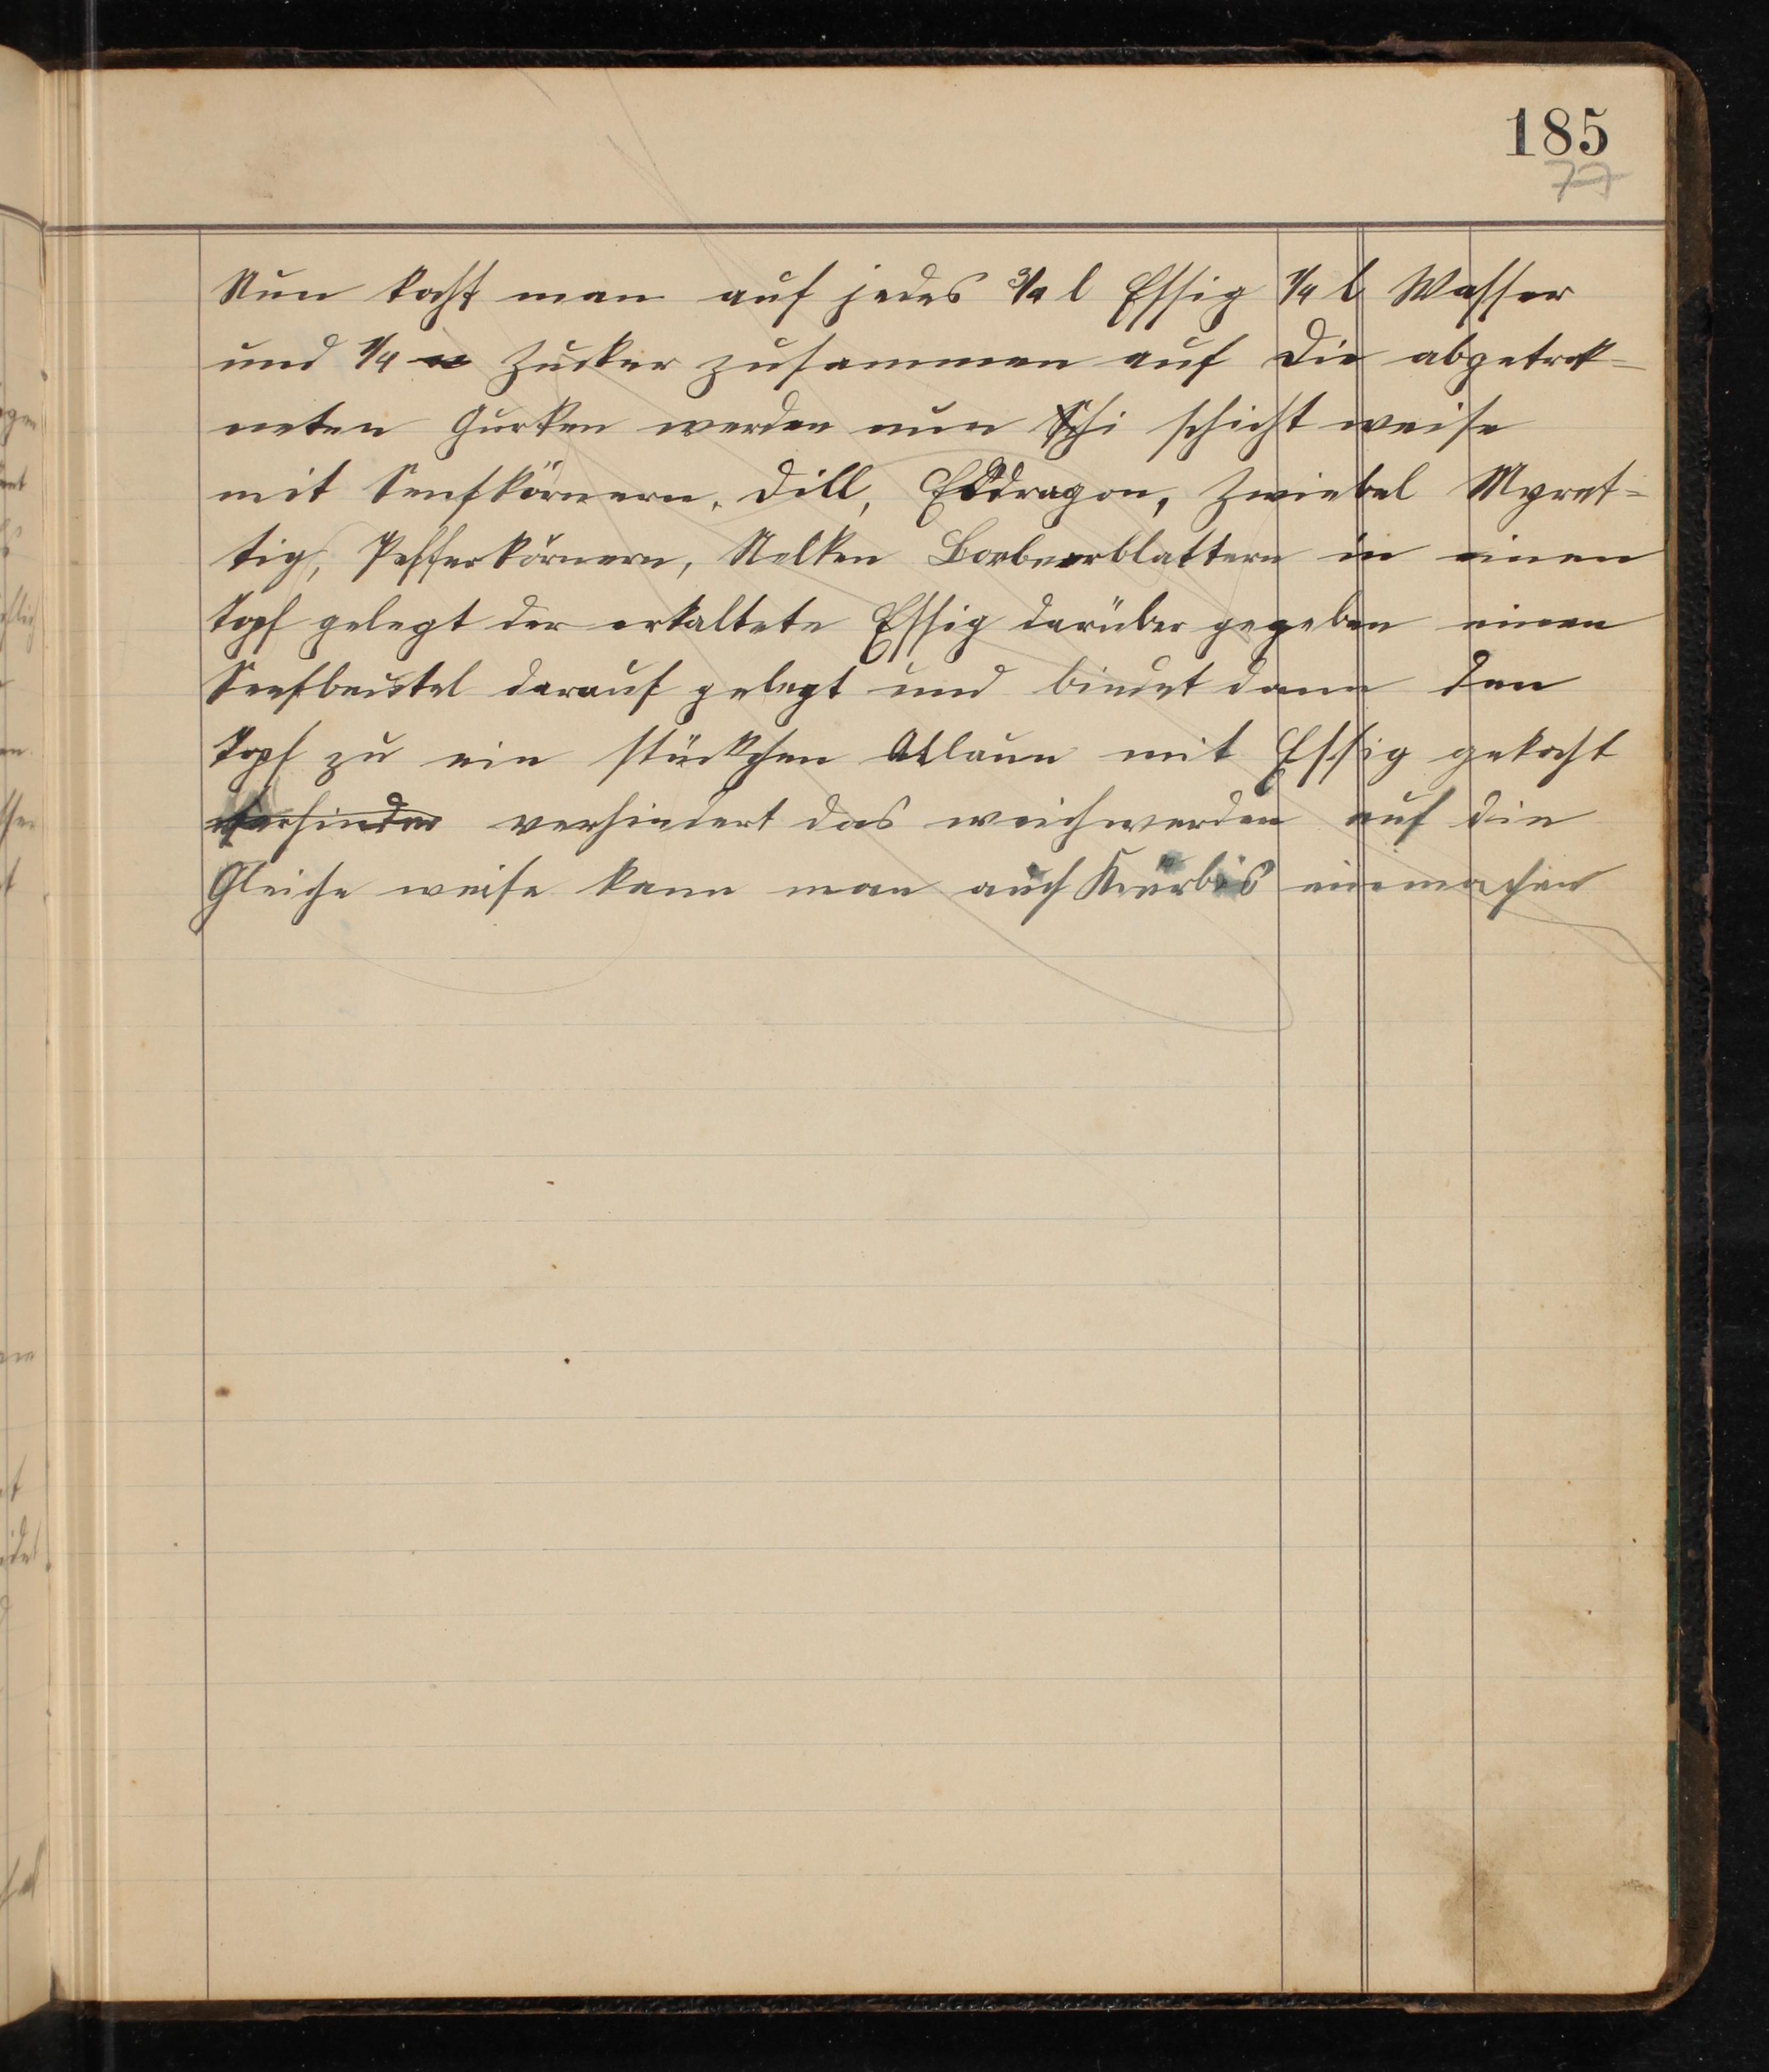 185
77
Nun kocht man auf jedes 3/4 l Essig 1/4 l Wasser
und 1/4 Zucker zusammen auf die abgetrok-
neten Gurken werden nun Schi schicht weise
mit Senfkörnern, Dill, Esdragon, Zwiebel Myret-
tig, Pefferkörnern, Nelken Lorbeerblattern in einen
Topf gelegt der erkaltete Essig darüber gegeben einen
Senfbeutel darauf gelegt und bindet dann den
Topf zu ein stückchen Allaun mit Essig gekocht
verhinder verhindert das weichwerden auf die
Gleiche weise kann man auch Kürbis einmachen